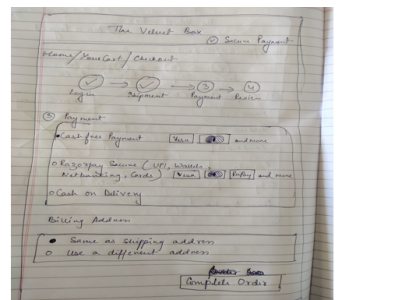 The Velvet Box
Secure Payment
Home/Your Cart/Checkout
3 4
Login Shipment Payment Review
③ Payment
Cashfree Payment VISA and more
Razorpay Secure (UPI, Wallets,
Netbanking, Cards) VISA RuPay and more
Cash on Delivery
Billing Address
Same as shipping address
Use a different address
Complete Order